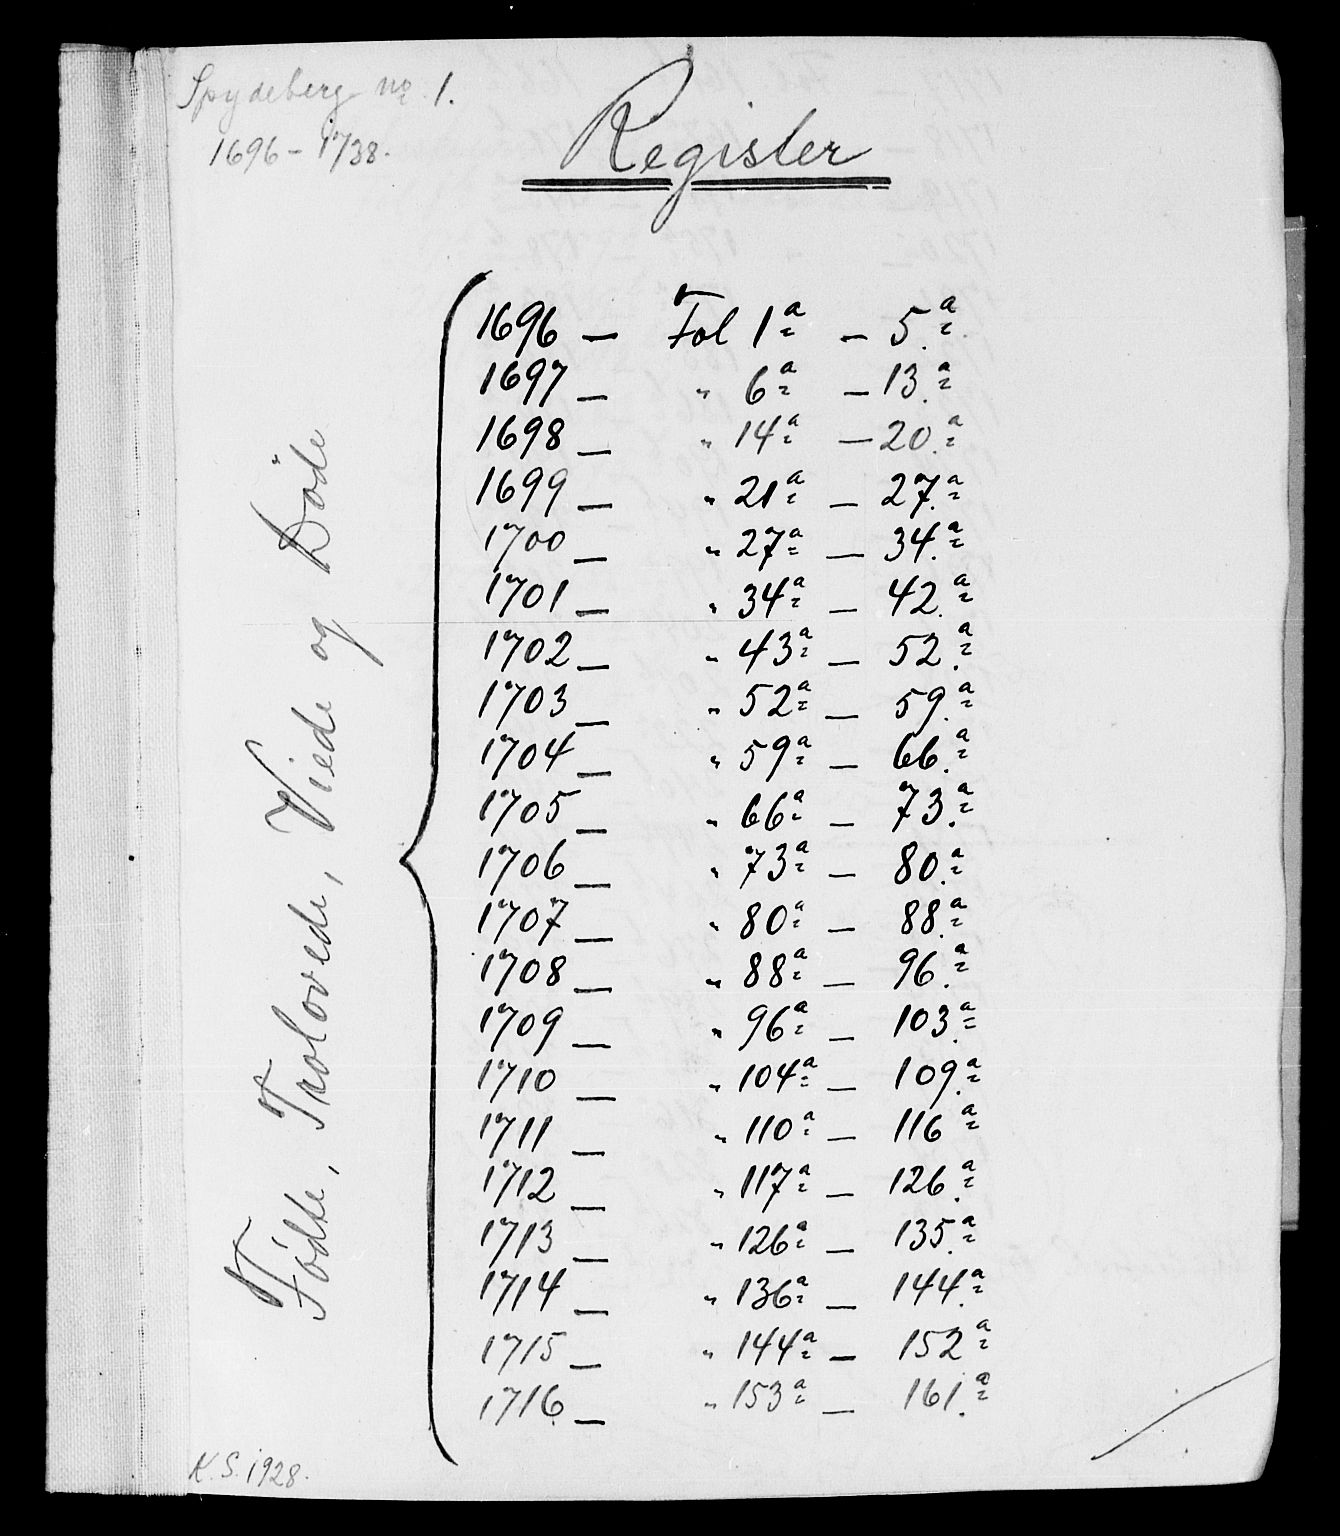 Spydeberg no 1.
1696 - 1738.
Register
Födte, Trolovede, Viede og Döde
1696 — Fol 1a — 5.a
1697 — " 6a — 13.a
1698 — " 14a — 20.a
1699 — " 21a — 27.a
1700 — " 27a — 34.a
1701 — " 34a — 42.a
1702 — " 43a — 52.a
1703 — " 52a — 59.a
1704 — " 59a — 66.a
1705 — " 66a — 73.a
1706 — " 73a — 80.a
1707 — " 80a — 88.a
1708 — " 88a — 96.a
1709 — " 96a — 103.a
1710 — " 104a — 109.a
1711 — " 110a — 116a
1712 — " 117a — 126.a
1713 — " 126a — 135.a
1714 — " 136a — 144.a
1715 — " 144a — 152a
1716 — " 153a — 161.a
K. S. 1928.